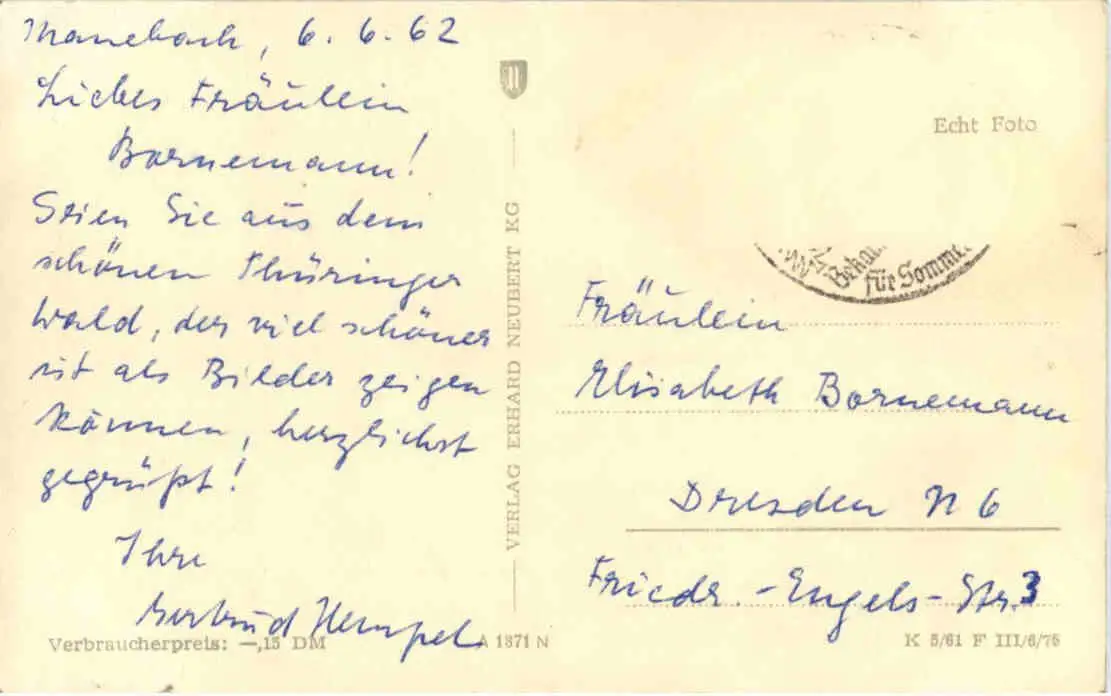 Manebach, 6.6.62
Liebes Fräulein
Bornemann!
Seien Sie aus dem
schönen Thüringer
Wald, der viel schöner
ist als Bilder zeigen
können, herzlichst
gegrüßt!
Ihre
Gertrud Hempel
Verbraucherpreis: —,15 DM
A 1371 N
VERLAG ERHARD NEUBERT KG
Echt Foto
für Somme
Fräulein
Elisabeth Bornemann
Dresden N 6
Friedr.-Engels-Str. 3
K 5/61 F III/6/76